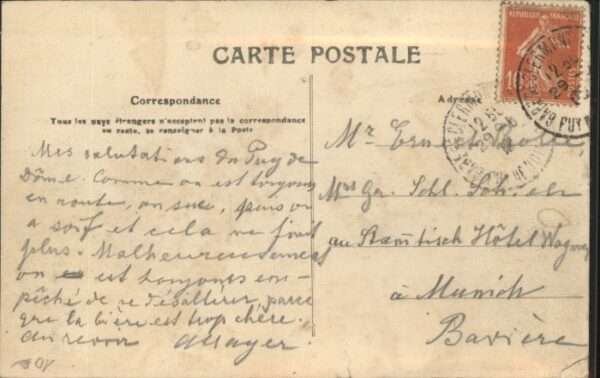 RÉPUBLIQUE FRANÇAISE
10
CARTE POSTALE
Correspondance
Adresse
Tous les pays étrangers n'acceptent pas la correspondance
au recto, se renseigner à la Poste
Mes salutations du Puy de
Dôme. Comme on est toujours
en route, on sue, puis on
a soif et cela ne finit
plus. Malheureusement
on est toujours em-
pêché de se désaltérer, parce
que la bière est trop chère.
Au revoir
Mr Ernest
Mrs Gr. Schl.
au Stammtisch Hôtel Wagner
à Munich
Bavière